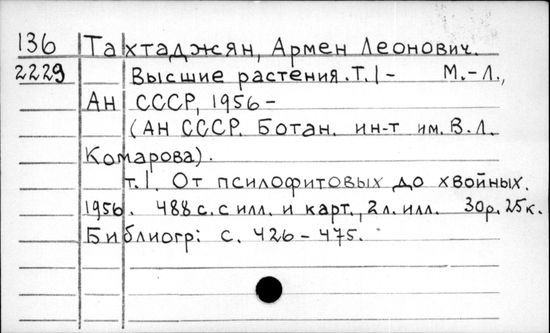 136 Тахтаджян, Армен Леонович.
2229 Высшие растения. Т.1 - М.-Л.,
Ан СССР, 1956 -
(АН СССР. Ботан. ин-т им. В.Л.
Комарова).
т.1. От псилофитовых до хвойных.
1956. 488 с. с илл. и карт., 2 л. илл. 30р. 25к.
Библиогр: с. 426 - 475.